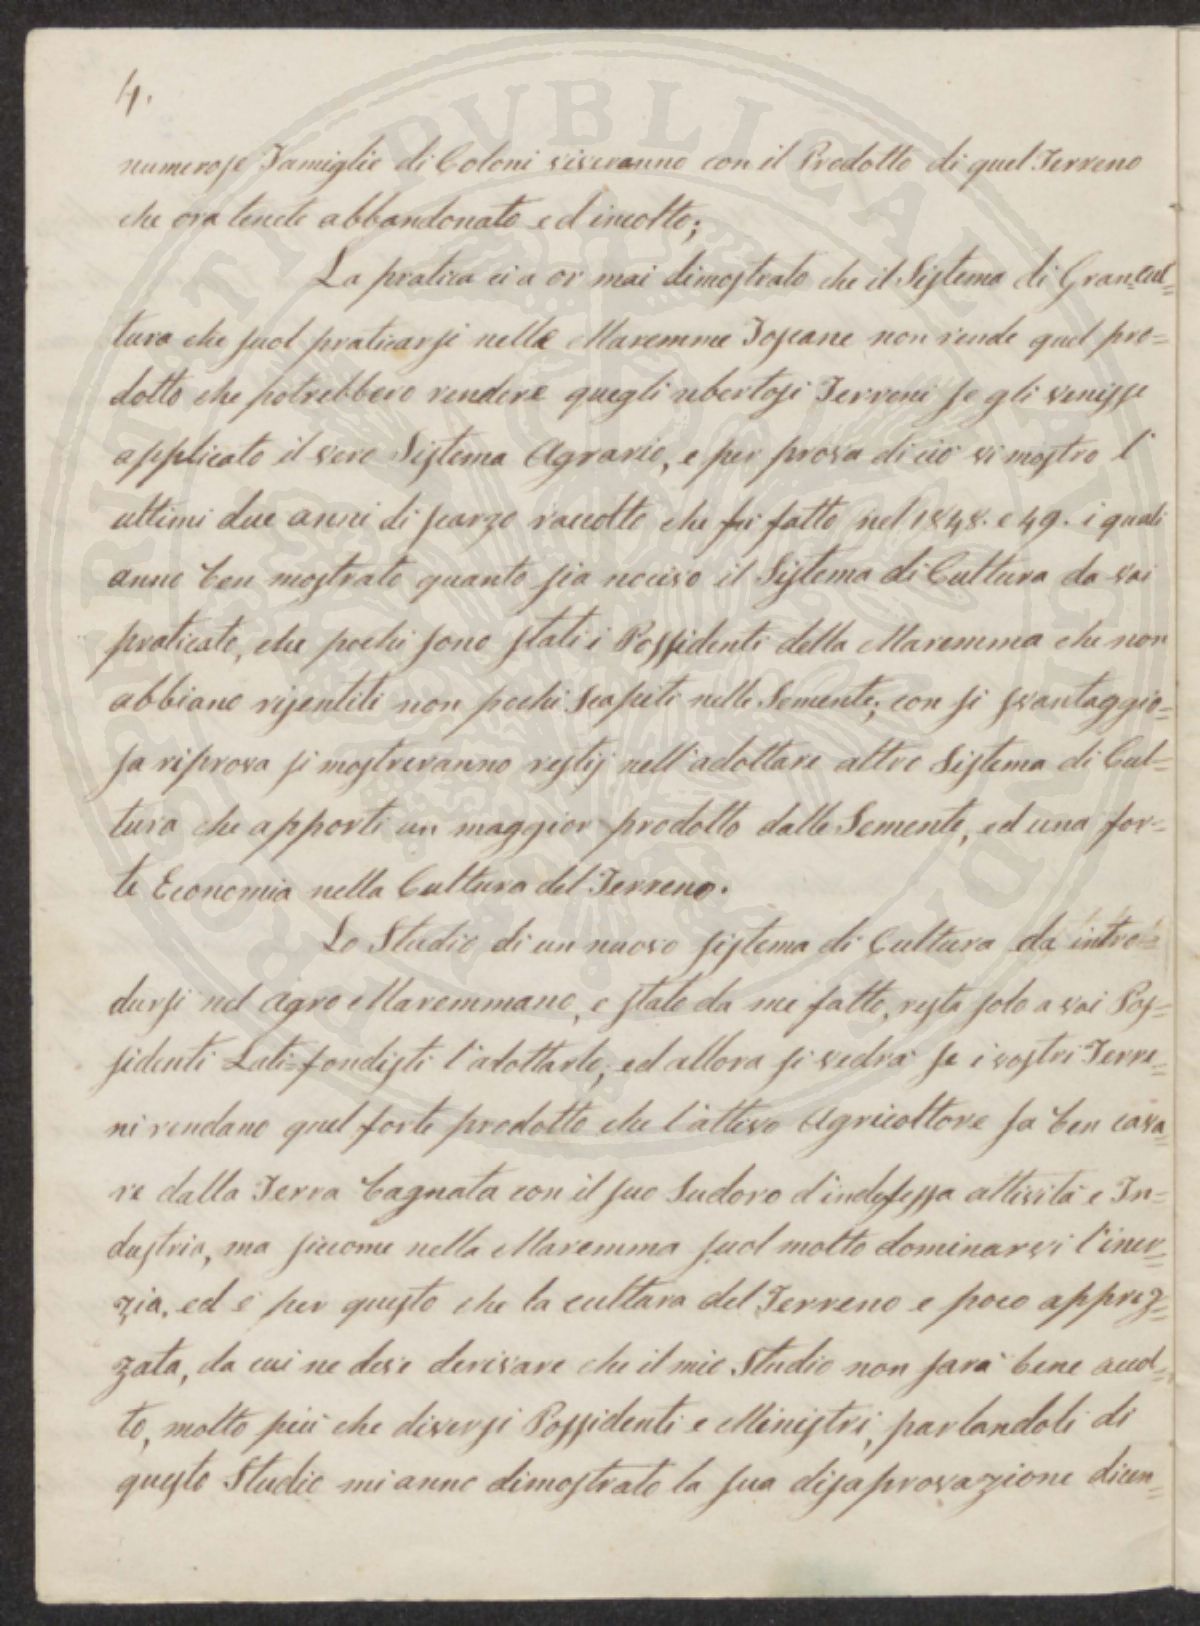 4.
numerose Famiglie di Coloni viveranno con il Prodotto di quel Terreno
che ora tenete abbandonato ed incolto;
La pratica ci a or mai dimostrato che il Sistema di Gran=cul=
tura che suol praticarsi nelle Maremme Toscane non rende quel pro=
dotto che potrebbero rendere quegli ubertosi Terreni se gli venisse
applicato il vero Sistema Agrario, e per prova di ciò vi mostro l'
ultimi due anni di scarzo raccolto che fu fatto nel 1848. e 49. i quali
anno ben mostrato quanto sia nocivo il Sistema di Cultura da voi
praticato, che pochi sono stati i Possidenti della Maremma che non
abbiano risentiti non pochi Scapiti nelle Semente; con si svantaggio=
sa riprova si mostreranno restij nell'adottare altro Sistema di Cul=
tura che apporti un maggior prodotto dalle Semente, ed una for=
te Economia nella Cultura del Terreno.
Lo Studio di un nuovo sistema di Cultura da intro=
dursi nel Agro Maremmano, e stato da me fatto, resta solo a voi Pos=
sidenti Lati=fondisti l'adottarlo; ed allora si vedrà se i vostri Terre=
ni rendano quel forte prodotto che l'attivo Agricoltore sa ben cava=
re dalla Terra bagnata con il suo Sudore d'indefessa attività e In=
dustria, ma siccome nella Maremma suol molto dominarvi l'iner=
zia, ed è per questo che la cultura del Terreno e poco apprez=
zata, da cui ne deve derivare che il mio Studio non sarà bene accol=
to, molto più che diversi Possidenti e Ministri, parlandoli di
questo Studio mi anno dimostrato la sua disaprovazione dicen=
PUBLICAE